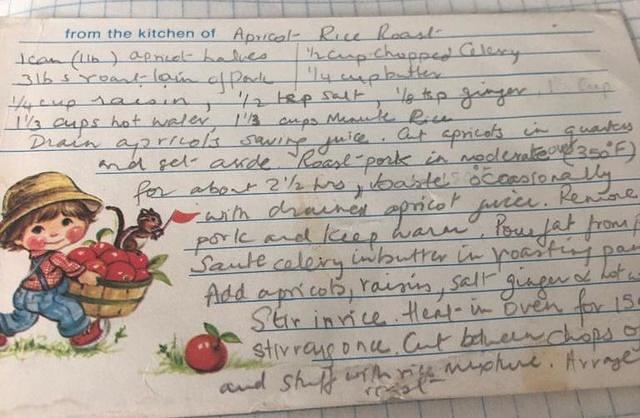 from the kitchen of Apricot Rice Roast
1 can (1 lb) apricot halves | 1/2 cup chopped Celery
3 lbs roast loin of Pork | 1/4 cup butter
1/4 cup raisin, 1/2 tsp salt, 1/8 tsp ginger
1 1/3 cups hot water, 1 1/3 cups Minute Rice
Drain apricots saving juice. Cut apricots in quarters
and set aside Roast pork in moderate oven (350°F)
for about 2 1/2 hrs, baste occasionally
with drained apricot juice. Remove
pork and keep warm. Pour fat from
Saute celery in butter in roasting pan
Add apricots, raisins, salt ginger & hot
Stir in rice. Heat in oven for 15
stirring once. Cut between chops
and stuff with rice mixture. Arrange
roast